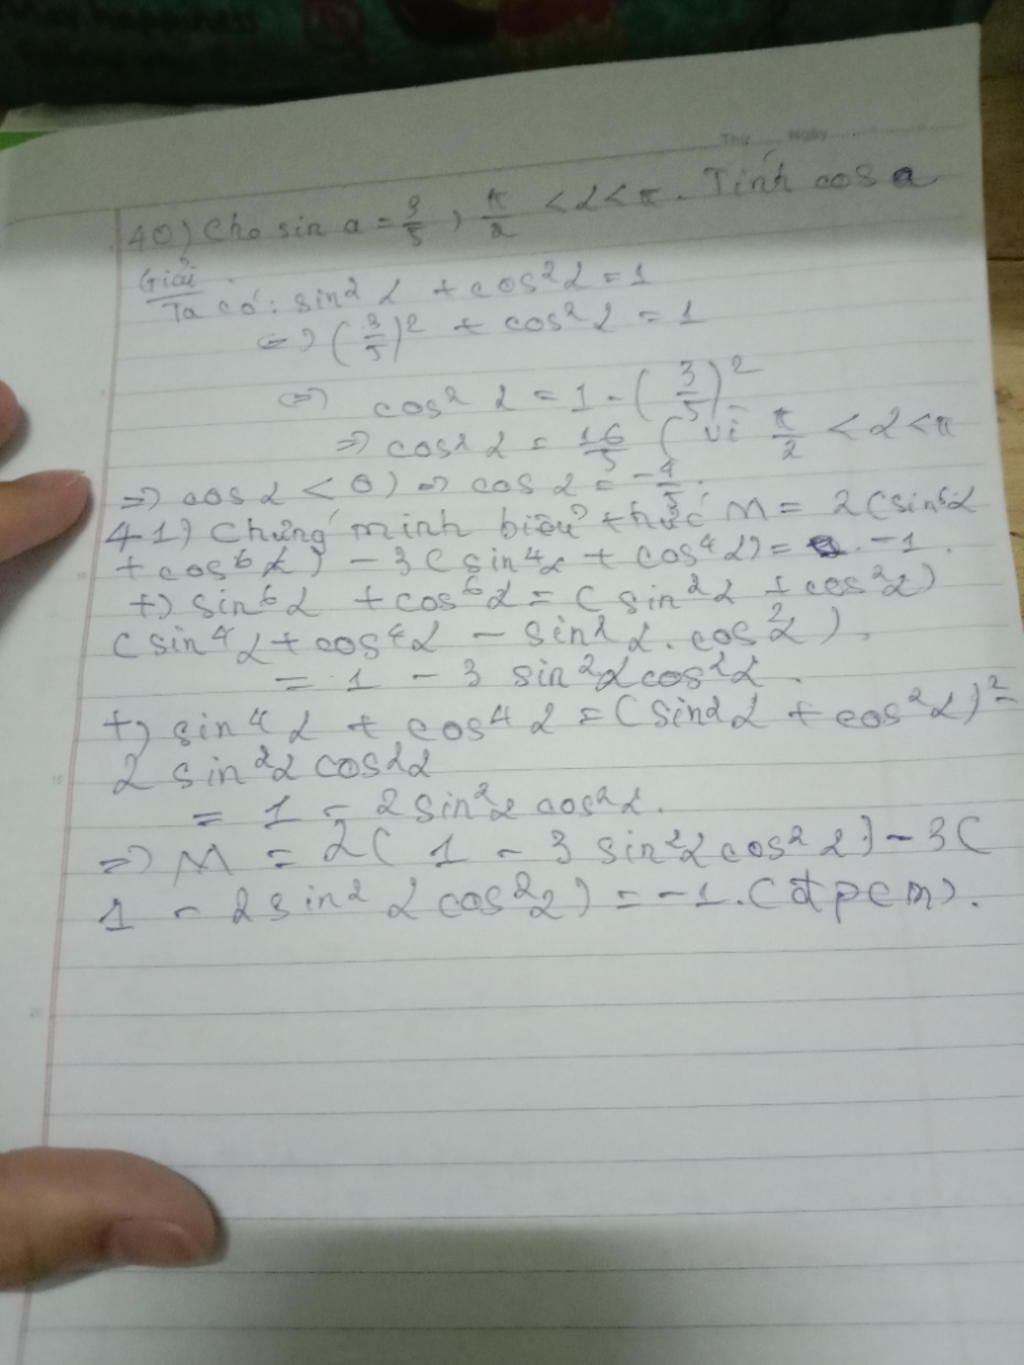 Thứ Ngày
40) Cho sin a = 3/5, π/2 < α < π. Tính cos a
Giải
Ta có: sin² α + cos² α = 1
<=> (3/5)² + cos² α = 1
<=> cos² α = 1 - (3/5)²
=> cos² α = 16/5 (vì π/2 < α < π
=> cos α < 0) => cos α = -4/5.
41) Chứng minh biểu thức M = 2(sin⁶ α
+ cos⁶ α) - 3(sin⁴ α + cos⁴ α) = -1.
+) sin⁶ α + cos⁶ α = (sin² α + cos² α)
(sin⁴ α + cos⁴ α - sin² α . cos² α).
= 1 - 3 sin² α cos² α.
+) sin⁴ α + cos⁴ α = (sin² α + cos² α)² -
2 sin² α cos² α
= 1 - 2 sin² α cos² α.
=> M = 2(1 - 3 sin² α cos² α) - 3(
1 - 2 sin² α cos² α) = -1. (đpcm).